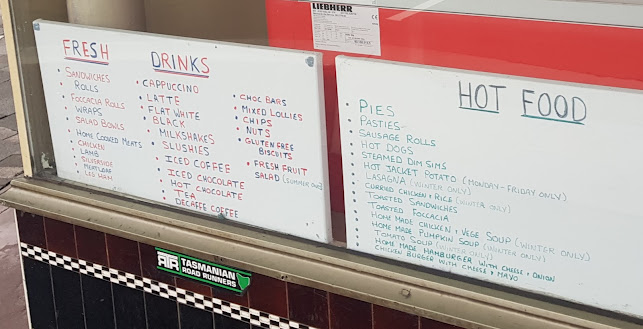 LIEBHERR
FRESH
SANDWICHES
ROLLS
FOCCACIA ROLLS
WRAPS
SALAD BOWLS
HOME COOKED MEATS
CHICKEN
LAMB
SILVERSIDE
MEATLOAF
LEG HAM
DRINKS
CAPPUCCINO
LATTE
FLAT WHITE
BLACK
MILKSHAKES
SLUSHIES
ICED COFFEE
ICED CHOCOLATE
HOT CHOCOLATE
TEA
DECAFFE COFFEE
CHOC BARS
MIXED LOLLIES
CHIPS
NUTS
GLUTEN FREE
BISCUITS
FRESH FRUIT
SALAD (SUMMER ONLY)
HOT FOOD
PIES
PASTIES
SAUSAGE ROLLS
HOT DOGS
STEAMED DIM SIMS
HOT JACKET POTATO (MONDAY-FRIDAY ONLY)
LASAGNA (WINTER ONLY)
CURRIED CHICKEN & RICE (WINTER ONLY)
TOASTED SANDWICHES
TOASTED FOCCACIA
HOME MADE CHICKEN & VEGE SOUP (WINTER ONLY)
HOME MADE PUMPKIN SOUP (WINTER ONLY)
TOMATO SOUP (WINTER ONLY)
HOME MADE HAMBURGER WITH CHEESE & ONION
CHICKEN BURGER WITH CHEESE & MAYO
RTR TASMANIAN
ROAD RUNNERS